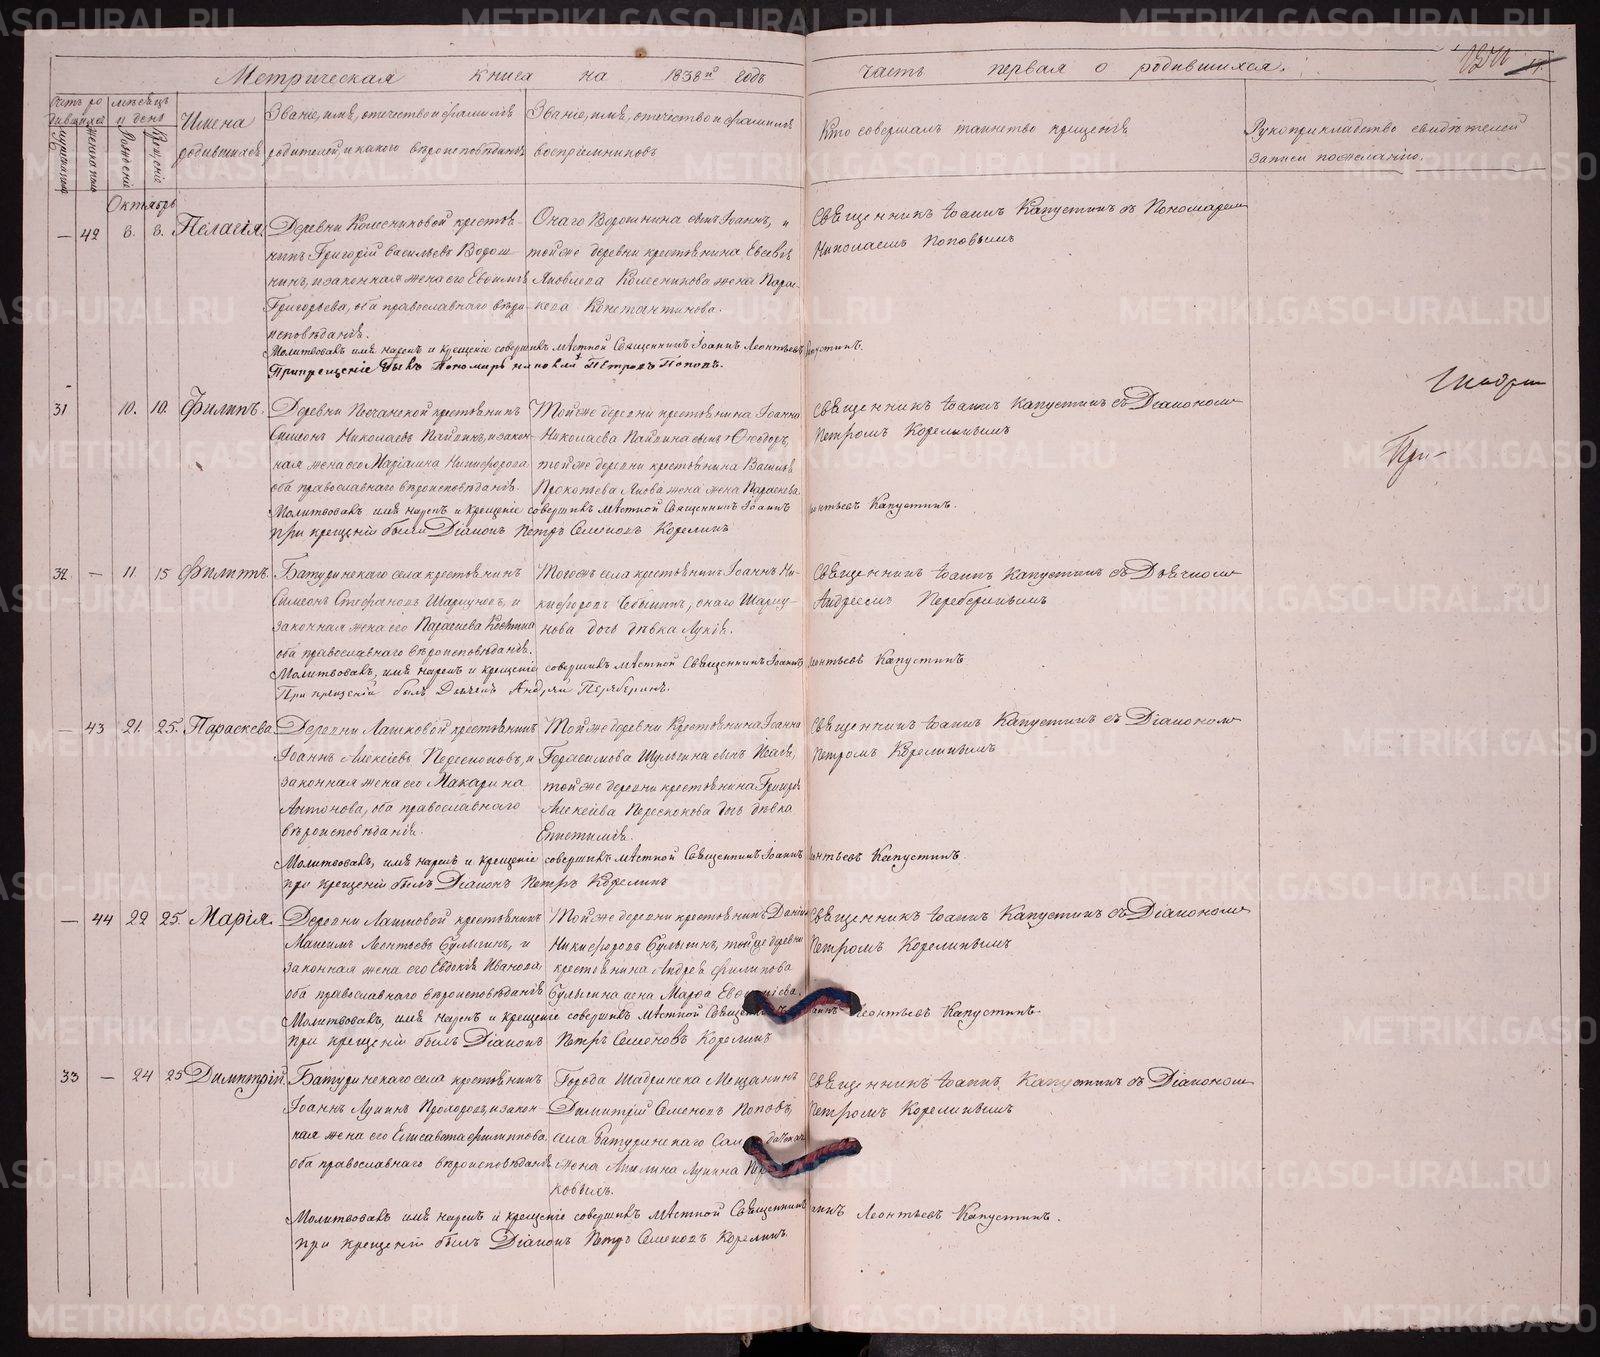 Метрическая книга на 1838й годъ
часть первая о родившихся.
Счетъ родившихся
мѣсяцъ и день
Имена родившихся
Званіе, имя, отечество и фамилія родителей, и какого вѣроисповѣданія
Званіе, имя, отечество и фамилія воспріемниковъ
Кто совершалъ таинство крещенія
Рукоприкладство свидѣтелей записи по желанію.
мужеска пола
женска пола
Рожденія
Крещенія
Октябрь
— 42 8. 8. Пелагія.
Деревни Колесниковой крестья-
нинъ Григорій Васильевъ Ворош-
нинъ, и законная жена его Евфимія
Григорьева, оба православнаго вѣро-
исповѣданія.
Онаго Ворошнина сынъ Іоаннъ, и
той же деревни крестьянина Евсевія
Яковлева Колесникова жена Парас-
кева Константинова.
Священникъ Іоаннъ Капустинъ съ Пономаремъ
Николаемъ Поповымъ
Молитвовалъ имя нарекъ и крещеніе совершилъ мѣстной Священникъ Іоаннъ Леонтьевъ Капустинъ.
При крещеніи былъ Пономарь Николай Петровъ Поповъ.
31 10. 10. Филипъ.
Деревни Песчанской крестьянинъ
Симеонъ Николаевъ Пайвинъ, и закон-
ная жена его Маріамна Никифорова
оба православнаго вѣроисповѣданія.
Той же деревни крестьянина Іоанна
Николаева Пайвина сынъ Ѳеодоръ,
той же деревни крестьянина Василья
Прокопьева жена Параскева
Священникъ Іоаннъ Капустинъ съ Діакономъ
Петромъ Корелинымъ
Молитвовалъ имя нарекъ и крещеніе совершилъ мѣстной Священникъ Іоаннъ Леонтьевъ Капустинъ.
при крещеніи былъ Діаконъ Петръ Семеновъ Корелинъ
32 — 11 15 Филипъ.
Батуринскаго села крестьянинъ
Симеонъ Стефановъ Шаршуновъ, и
законная жена его Параскева
оба православнаго вѣроисповѣданія.
Тогожъ села крестьянинъ Іоаннъ Ни-
кифоровъ онаго Шаршу-
нова дочь дѣвка Лукія.
Священникъ Іоаннъ Капустинъ съ Дьячкомъ
Андреемъ Переберинымъ
Молитвовалъ, имя нарекъ и крещеніе совершилъ мѣстной Священникъ Іоаннъ Леонтьевъ Капустинъ
При крещеніи былъ Дьячекъ Андрей Переберинъ.
— 43 21. 25. Параскева.
Деревни Лашковой крестьянинъ
Іоаннъ Алексіевъ Перескоковъ, и
законная жена его Макарина
Антонова, оба православнаго
вѣроисповѣданія.
Той же деревни Крестьянина Іоанна
Герасимова Шулгина сынъ Исаія,
той же деревни крестьянина Григорія
Алексіева Перескокова дочь дѣвка
Епистимія.
Священникъ Іоаннъ Капустинъ съ Діакономъ
Петромъ Корелинымъ
Молитвовалъ, имя нарекъ и крещеніе совершилъ мѣстной Священникъ Іоаннъ Леонтьевъ Капустинъ
при крещеніи былъ Діаконъ Петръ Корелинъ
— 44 22 25. Марія.
Деревни Лашковой крестьянинъ
Максимъ Леонтьевъ Булыгинъ, и
законная жена его Евдокія Иванова
оба православнаго вѣроисповѣданія
Той же деревни крестьянинъ Даніилъ
Никифоровъ Булыгинъ, той же деревни
крестьянина Андрея Филипова
Булыгина жена Марѳа
Священникъ Іоаннъ Капустинъ съ Діакономъ
Петромъ Корелинымъ
Молитвовалъ, имя нарекъ и крещеніе совершилъ мѣстной Священникъ Іоаннъ Леонтьевъ Капустинъ.
при крещеніи былъ Діаконъ Петръ Семеновъ Корелинъ
33 — 24 25 Димитрій.
Батуринскаго села крестьянинъ
Іоаннъ Лукинъ Прохоровъ, и закон-
ная жена его Елисавета Филиппова
оба православнаго вѣроисповѣданія
Города Шадринска Мещанинъ
Димитрій Семеновъ Поповъ,
села Батуринскаго
жена Акилина Лукина
ковыхъ.
Священникъ Іоаннъ Капустинъ съ Діакономъ
Петромъ Корелинымъ
Молитвовалъ имя нарекъ и крещеніе совершилъ мѣстной Священникъ Іоаннъ Леонтьевъ Капустинъ.
при крещеніи былъ Діаконъ Петръ Семеновъ Корелинъ
При-
METRIKI.GASO-URAL.RU